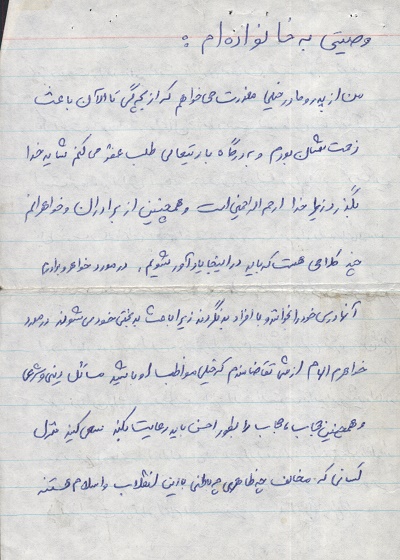 وصیتی به خانواده ام :
من از پدر و مادر خیلی معذرت می خواهم که از بچگی تا الآن باعث
زحمتشان بودم و به درگاه باریتعالی طلب عفو می کنم شاید خدا
بگذرد زیرا خدا ارحم الراحمین است و همچنین از برادران و خواهرانم
چند کلامی هست که باید در اینجا یادآور شویم . در مورد خواهر و برادرها
آنها درس خود را بخوانند و با افراد بد نگردند زیرا باعث بدبختی خود می شوند در مورد
خواهرم الهام از شما تقاضامندم که خیلی مواظب او باشید مسائل دینی و شرعی
و همچنین حجاب ، حجاب را بطور احسن باید رعایت بکند سعی کنید منزل
کسانی که مخالف چه ظاهری چه باطنی با این انقلاب و اسلام هستند